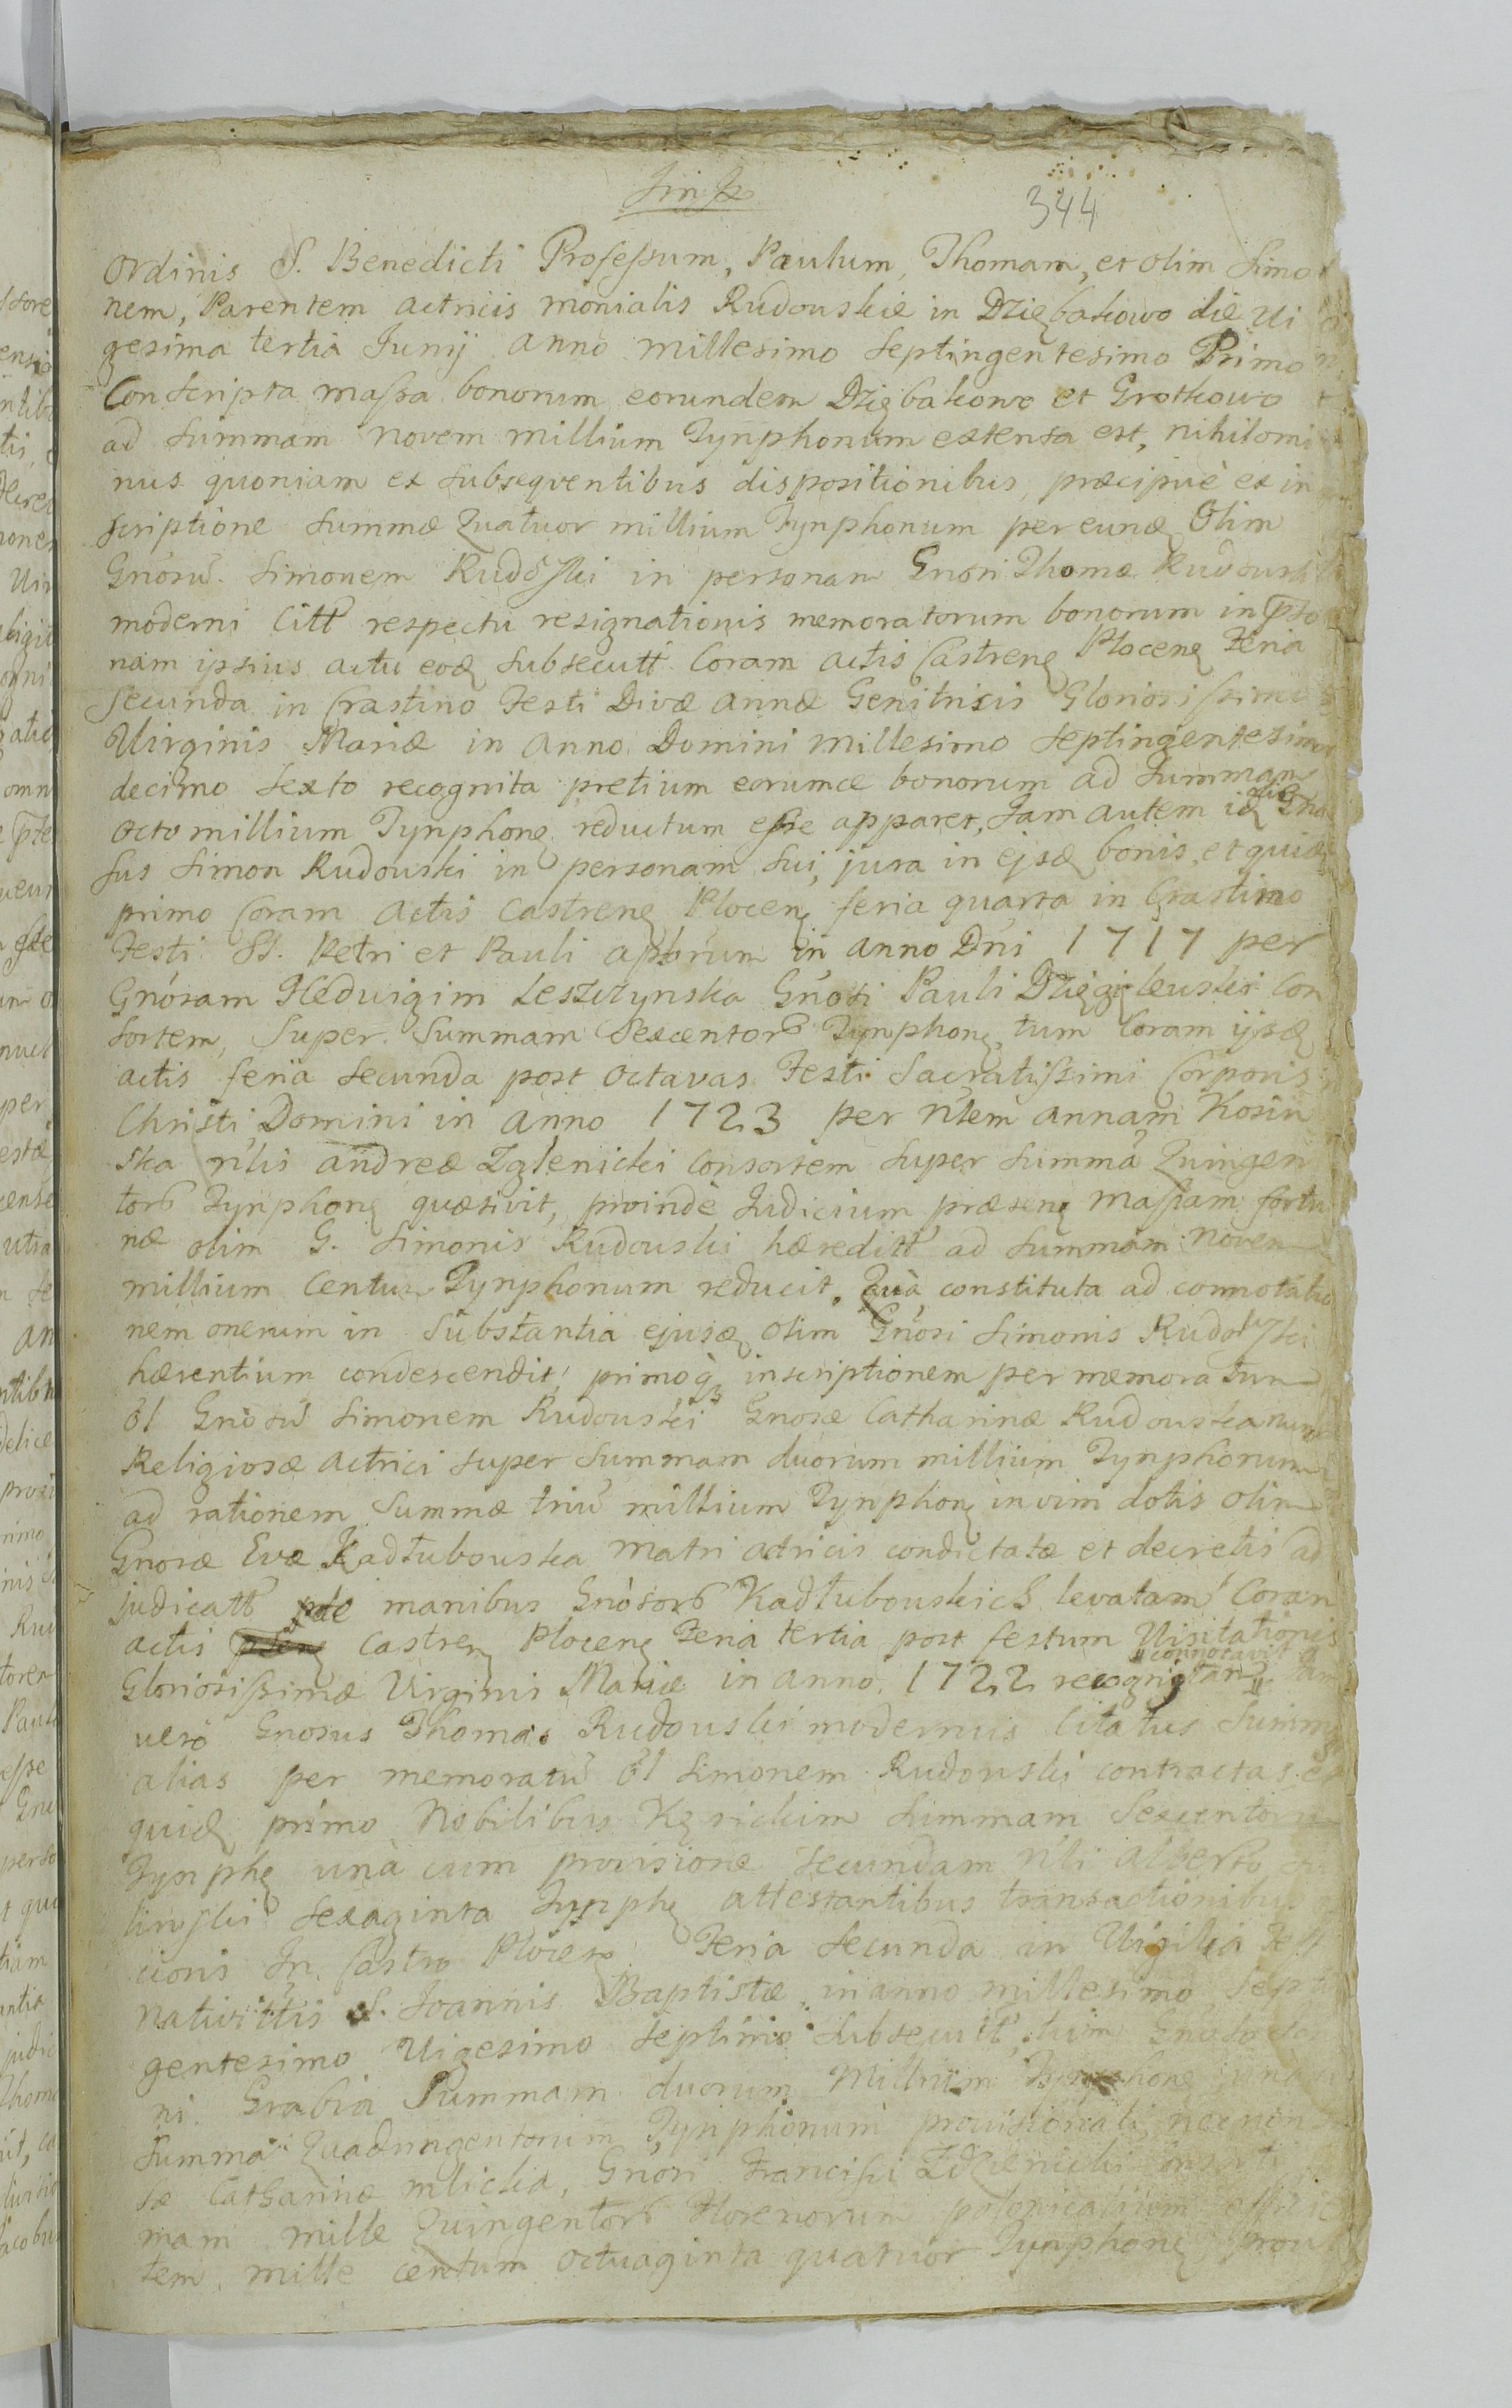 344
Ordinis S. Benedicti Professum, Paulum, Thomam, et olim Simo
nem, Parentem actricis monialis Rudouskie in Dziębakowo die Ui
gesima tertia Junij anno millesimo Septingentesimo Primo
Conscripta massa bonorum eorundem Dziębakowo et Grotkowo
ad Summam novem millium Tynphonum extensa est, nihilomi
nus quoniam ex subsequentibus dispositionibus, præcipuè ex in
scriptione Summæ Quatuor millium Tynphonum per eund Olim
Gnosū Simonem Rudoski in personam Gnosi Thomæ Rudouski
moderni Citt respectu resignationis memoratorum bonorum in pso
nam ipsius actu eod subsecutt Coram actis Castren Plocen Feria
Secunda in Crastino Festi Divæ Annæ Genitricis Gloriosissimæ
Uirginis Mariæ in anno Domini millesimo Septingentesimo
decimo Sexto recognita pretium eorumd bonorum ad Summam
octo millium Tynphon reductum esse apparet, Jam autem id Gno
sus Simon Rudouski in personam sui, jura in ejsd bonis, et quid
primo Coram Actis Castren Plocen feria quarta in Crastino
Festi SS. Petri et Pauli aplorum in anno Dni 1717 per
Gnosam Heduigim Leszczynska Gnosi Pauli Dzięgielewski Con
sortem, Super Summam Sexcentor Tynphon, tum Coram ijsd
actis feria secunda post Octavas Festi Sacratissimi Corporis
Christi Domini in anno 1723 per Nlem annam Kosin
ska Nlis andreæ Zglenicki Consortem super summā Quingen
tor Tynphon quæsivit, proindè Judicium præsens massam fortu
næ olim G. Simonis Rudouski hæreditt ad summam novem
millium Centum Tynphonum reducit. Quâ constituta ad connotatio
nem onerum in substantia ejusd olim Gnosi Simonis Rudouski
hærentium condescendit, primoq inscriptionem per memoratum
Ol Gnosū Simonem Rudouski Gnosæ Catharinæ Rudouska nunc
Religiosæ Actrici super Summam duorum millium Tynphonum
ad rationem Summæ triū millium Tynphon in vim dotis olim
Gnosæ Evæ Kadłubouska matri actricis condictatæ et decretis ad
judicatt de manibus Gnosor Kadłubouskich levatam Coram
actis Castren Plocen Feria tertia post festum Uisitationis
Gloriosissimæ Uirginis Mariæ in anno 1722 recognitam connotavit
vero Gnosus Thomas Rudouski modernus Citatus Summas
alias per memoratū Ol Simonem Rudouski contractas et
quid primo Nobilibus Summam Sexcentorum
Tynph unà cum provisione secundam Nli Alberto
Sexaginta Tynph attestantibus transactionibus
In Castro Plocen Feria Secunda in Uigilia Festi
nativittis S. Joannis Baptistæ in anno millesimo Septin
gentesimo Uigesimo Septimo subsecutt, tum
ni Grabia Summam duorum Millium Tynphon unà cum
Summa Quadringentorum Tynphonum provisionali, necnon
Catharinæ mlicka, Gnosi Francisci Consorti
mam mille Quingentor Florenorum polonicalium
tem mille centum octuaginta quatuor Tynphon prout